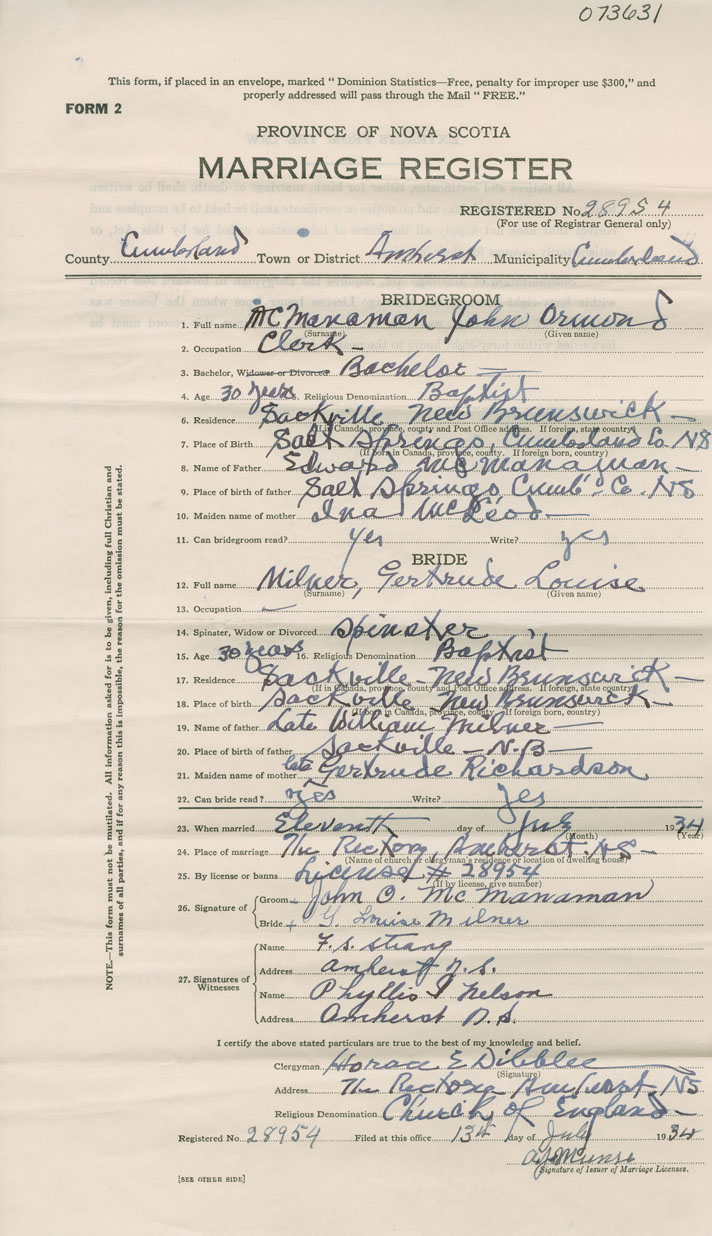 073631
This form, if placed in an envelope, marked " Dominion Statistics—Free, penalty for improper use $300," and
properly addressed will pass through the Mail " FREE."
FORM 2
PROVINCE OF NOVA SCOTIA
MARRIAGE REGISTER
REGISTERED No. 28954
(For use of Registrar General only)
County Cumberland Town or District Amherst Municipality Cumberland
BRIDEGROOM
1. Full name McManaman John Ormond
(Surname) (Given name)
2. Occupation Clerk
3. Bachelor, Widower or Divorced Bachelor
4. Age 30 years 5. Religious Denomination Baptist
6. Residence Sackville New Brunswick
(If in Canada, province, county and Post Office address. If foreign, state country)
7. Place of Birth Salt Springs, Cumberland Co NS
(If born in Canada, province, county. If foreign born, country)
8. Name of Father Edward McManaman
9. Place of birth of father Salt Springs Cumb. Co. NS
10. Maiden name of mother Ina McLeod
11. Can bridegroom read? Yes Write? yes
BRIDE
12. Full name Milner, Gertrude Louise
(Surname) (Given name)
13. Occupation —
14. Spinster, Widow or Divorced Spinster
15. Age 30 years 16. Religious Denomination Baptist
17. Residence Sackville - New Brunswick
(If in Canada, province, county and Post Office address. If foreign, state country)
18. Place of birth Sackville New Brunswick
(If born in Canada, province, county, If foreign born, country)
19. Name of father Late William Milner
20. Place of birth of father Sackville - N.B
21. Maiden name of mother late Gertrude Richardson
22. Can bride read? Yes Write? Yes
23. When married Eleventh day of July 1934
(Month) (Year)
24. Place of marriage The Rectory, Amherst NS
(Name of church or clergyman's residence or location of dwelling house)
25. By license or banns License # 28954
(If by license, give number)
26. Signature of Groom John O. McManaman
Bride G. Louise Milner
27. Signatures of Witnesses
Name F. S. Strang
Address Amherst N.S.
Name Phyllis I Nelson
Address Amherst N.S.
I certify the above stated particulars are true to the best of my knowledge and belief.
Clergyman Horace E Dibblee
(Signature)
Address The Rectory Amherst NS
Religious Denomination Church of England
Registered No. 28954 Filed at this office 13th day of July 1934
Signature of Issuer of Marriage Licenses.
[SEE OTHER SIDE]
NOTE.—This form must not be mutilated. All information asked for is to be given, including full Christian and
surnames of all parties, and if for any reason this is impossible, the reason for the omission must be stated.